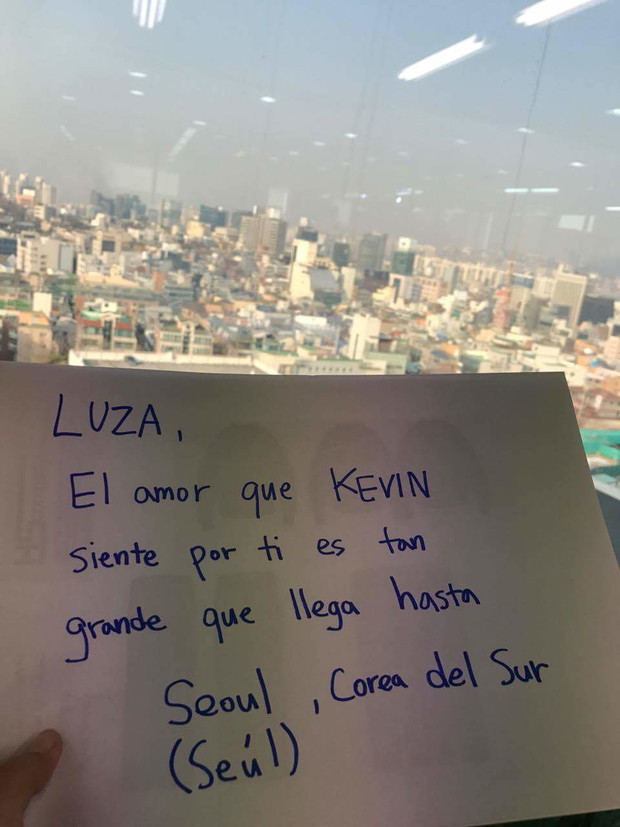 LUZA,
El amor que KEVIN
siente por ti es tan
grande que llega hasta
Seoul, Corea del Sur
(Seúl)